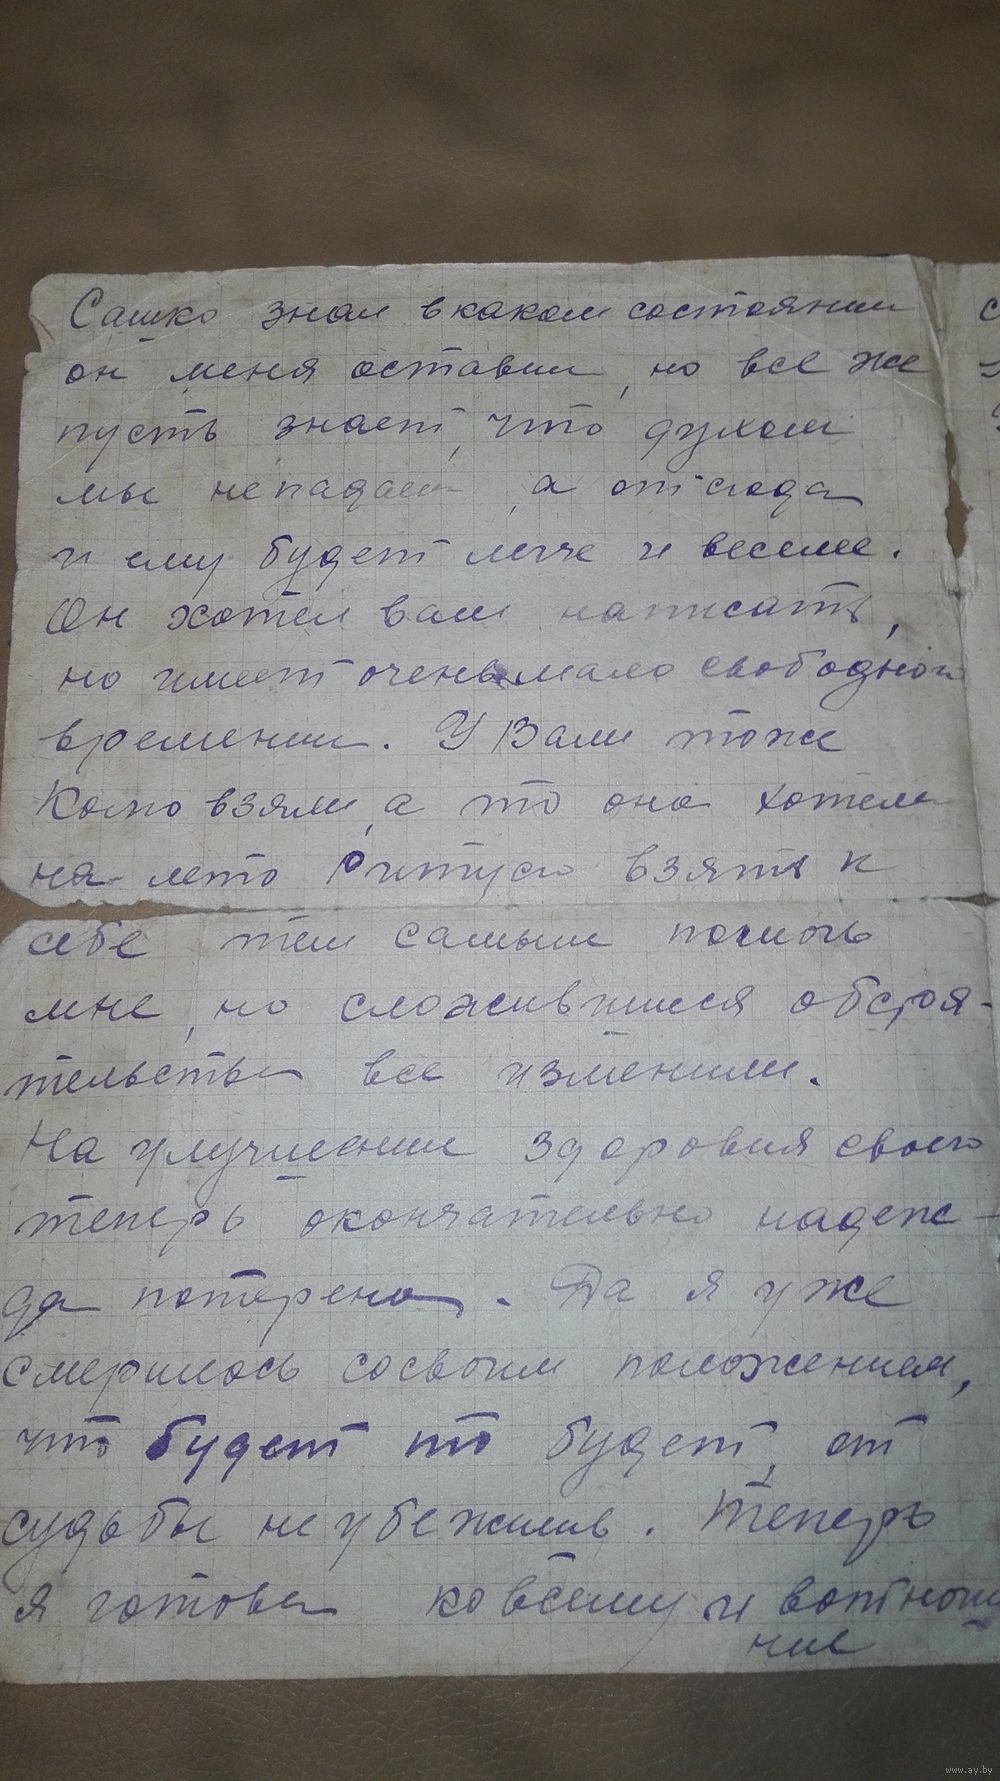 Сашко знал в каком состоянии
он меня оставил, но все же
пусть знает, что духом
мы не падаем, а отсюда
и ему будет легче и веселее.
Он хотел вам написать,
но имеет очень мало свободного
времени. У Вали тоже
Колю взяли, а то она хотела
на лето Ритусю взять к
себе тем самым помочь
мне, но сложившиеся обстоя-
тельства все изменили.
На улучшении здоровия своего
теперь окончательно надеж-
да потеряна. Да я уже
смерилась со своим положением,
что будет то будет, от
судьбы не убежишь. Теперь
я готова ко всему и в отноше
нии
www.ay.by